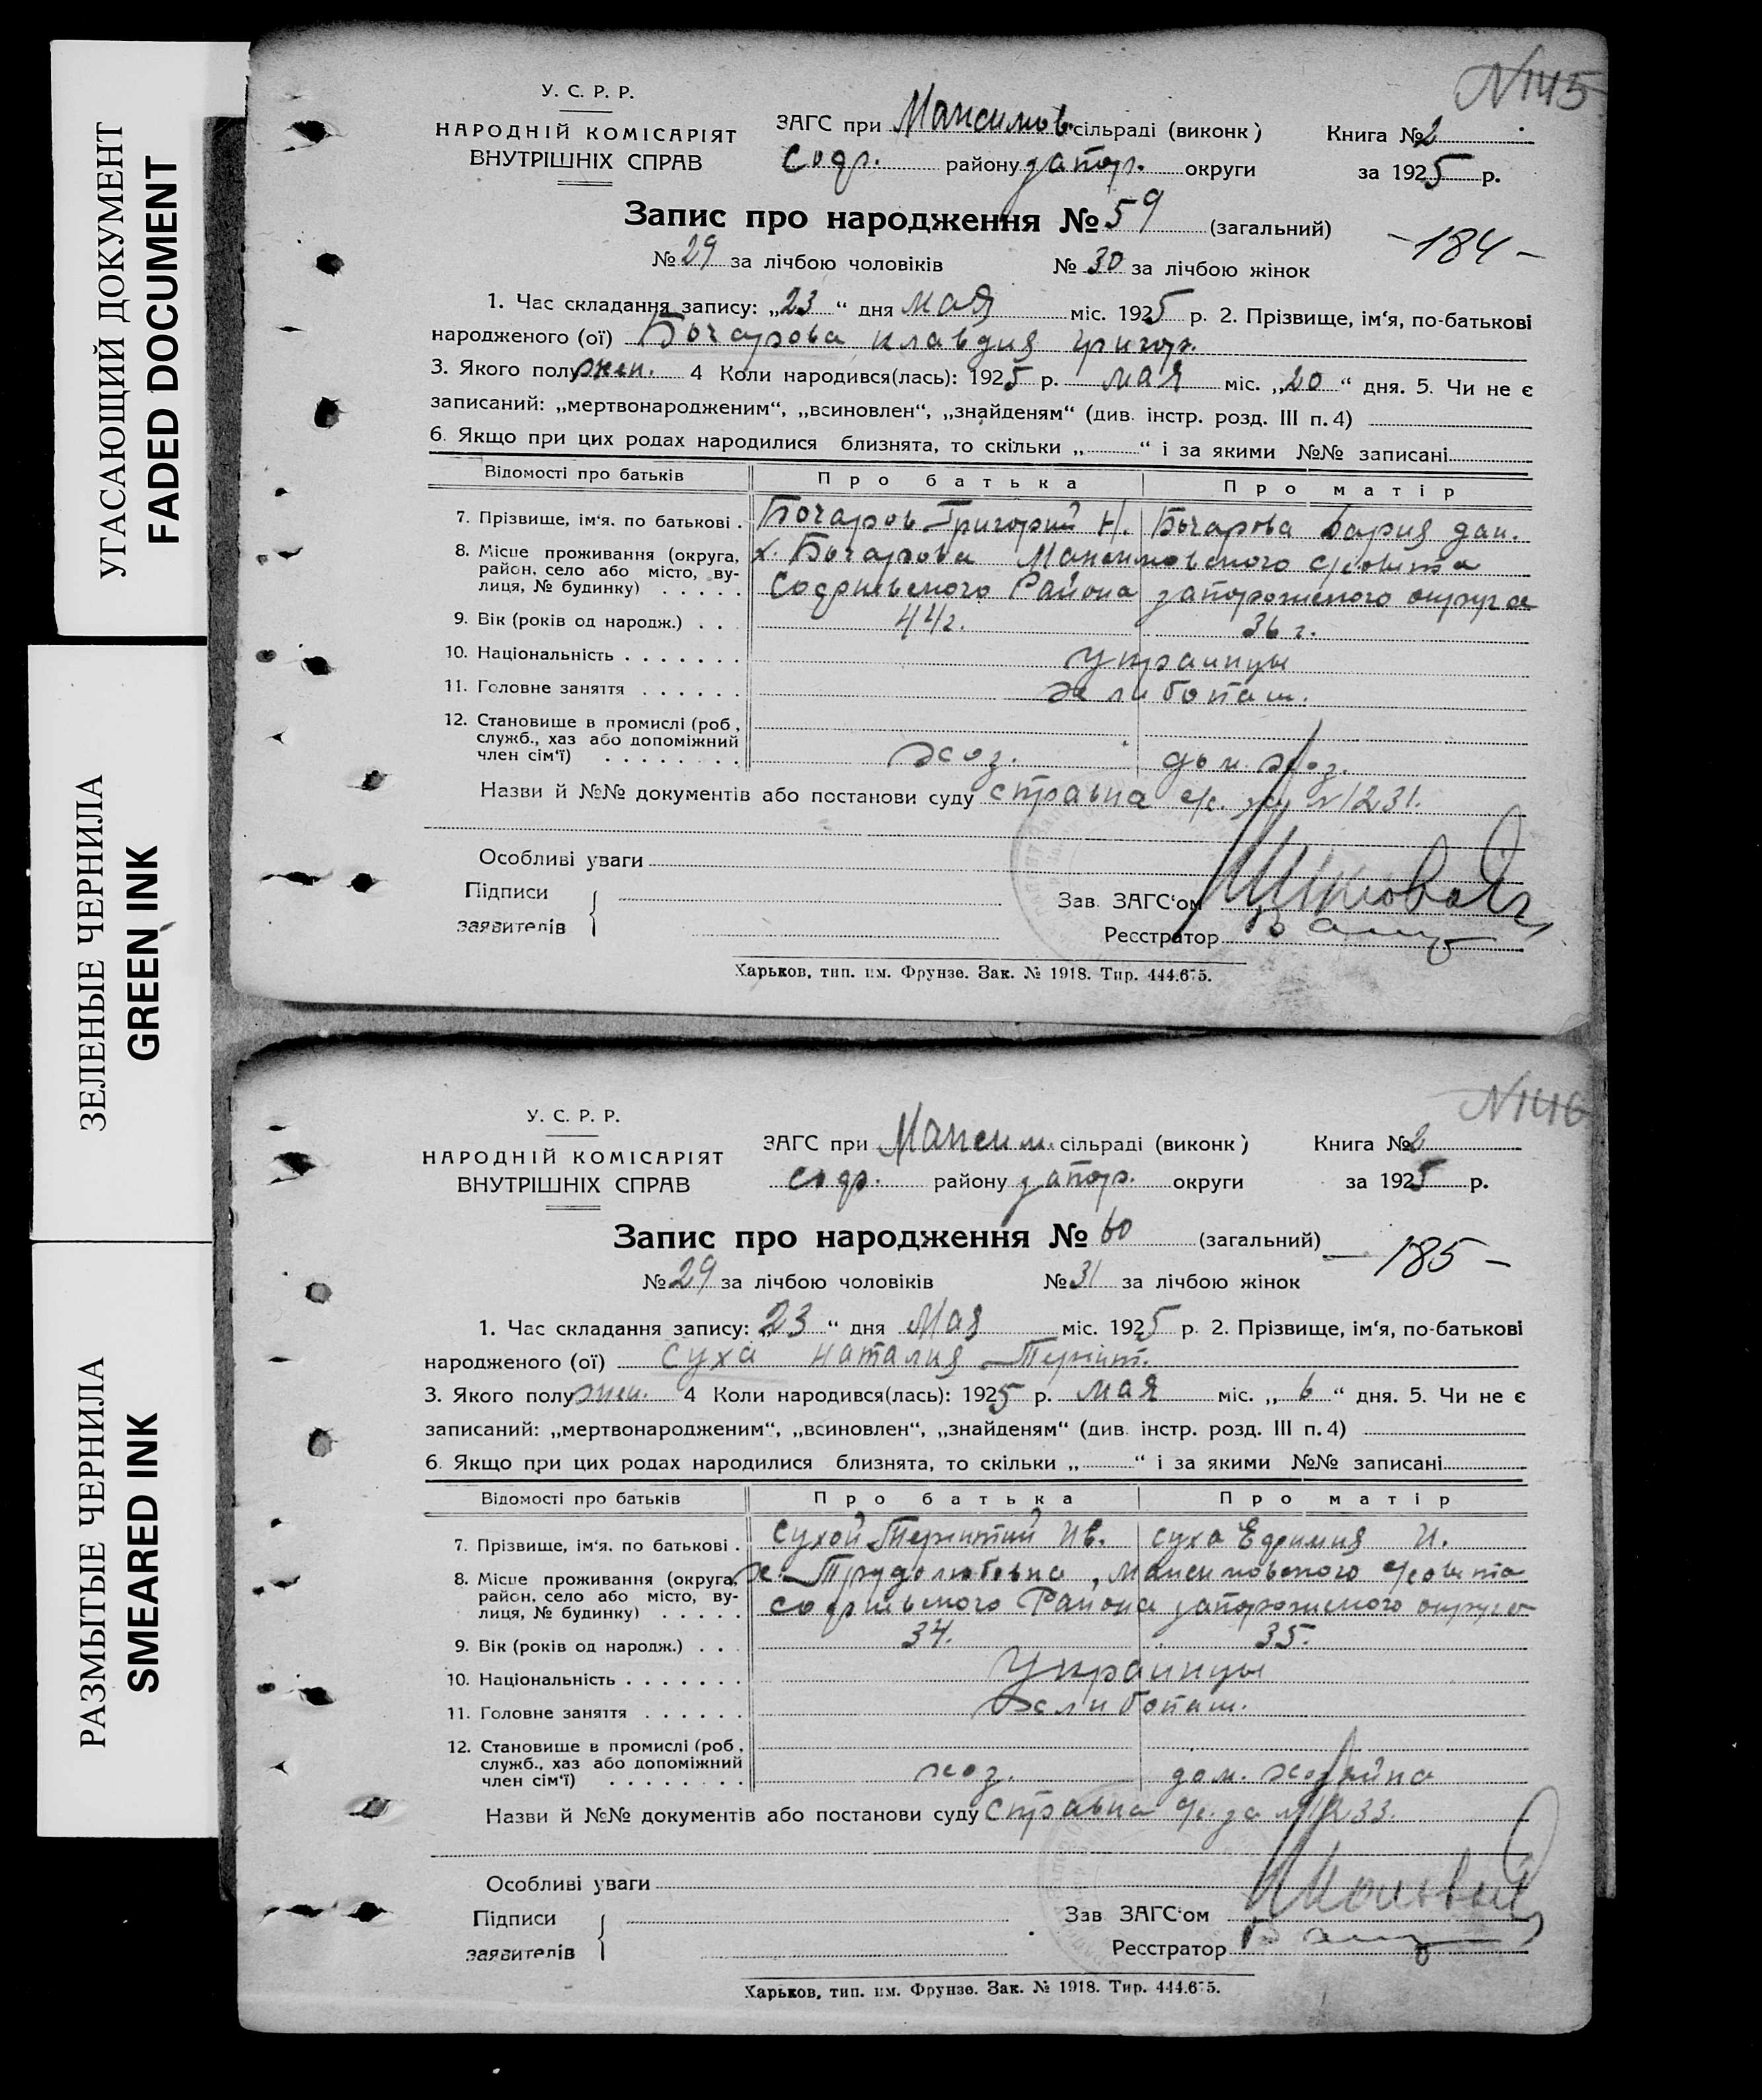 УГАСАЮЩИЙ ДОКУМЕНТ
FADED DOCUMENT
ЗЕЛЕНЫЕ ЧЕРНИЛА
GREEN INK
РАЗМЫТЫЕ ЧЕРНИЛА
SMEARED INK
N145
У. С. Р. Р.
НАРОДНІЙ КОМІСАРІЯТ
ВНУТРІШНІХ СПРАВ
ЗАГС при Максимов. сільраді (виконк)
Софр. району запор. округи
Книга № 2
за 1925 р.
Запис про народження № 59 (загальний)
-184-
№ 29 за лічбою чоловіків № 30 за лічбою жінок
1. Час складання запису: „23“ дня мая міс. 1925 р. 2. Прізвище, ім'я, по-батькові
народженого (ої) Бочарова Клавдия Григор.
3. Якого полу жен. 4 Коли народився(лась): 1925 р. мая міс. „20“ дня. 5. Чи не є
записаний: „мертвонародженим“, „всиновлен“, „знайденям“ (див. інстр. розд. III п. 4)
6. Якщо при цих родах народилися близнята, то скільки „ “ і за якими №№ записані
Відомості про батьків Про батька Про матір
7. Прізвище, ім'я. по батькові . Бочаров Григорий Н. Бочарова Дария Дан.
8. Місце проживання (округа, район, село або місто, ву-лиця, № будинку) . . . . . х. Бочарова Максимовского с/совета
Софиевского Района запорожского округа
9. Вік (років од народж.) . . 44 г. 36 г.
10. Національність . . . . . . . украинцы
11. Головне заняття . . . . . . хлибопаш.
12. Становище в промислі (роб, служб., хаз або допоміжний член сім'ї) . . . . . . . . хоз. дом. хоз.
Назви й №№ документів або постанови суду справка с/с. за N 1231.
Особливі уваги
Підписи
заявителів
Зав. ЗАГС'ом
Реєстратор
Харьков, тип. им. Фрунзе. Зак. № 1918. Тир. 444.675.
N146
У. С. Р. Р.
НАРОДНІЙ КОМІСАРІЯТ
ВНУТРІШНІХ СПРАВ
ЗАГС при Максим. сільраді (виконк)
Софр. району запор. округи
Книга № 2
за 1925 р.
Запис про народження № 60 (загальний)
-185-
№ 29 за лічбою чоловіків № 31 за лічбою жінок
1. Час складання запису: „23“ дня мая міс. 1925 р. 2. Прізвище, ім'я, по-батькові
народженого (ої) Суха Наталия Терент.
3. Якого полу жен. 4 Коли народився(лась): 1925 р. мая міс. „6“ дня. 5. Чи не є
записаний: „мертвонародженим“, „всиновлен“, „знайденям“ (див. інстр. розд. III п. 4)
6. Якщо при цих родах народилися близнята, то скільки „ “ і за якими №№ записані
Відомості про батьків Про батька Про матір
7. Прізвище, ім'я. по батькові . Сухой Терентий Ив. Суха Ефимия И.
8. Місце проживання (округа, район, село або місто, ву-лиця, № будинку) . . . . . х. Трудолюбовка, Максимовского с/совета
Софиевского Района запорожского округа
9. Вік (років од народж.) . . . 34. 35.
10. Національність . . . . . . . Украинцы
11. Головне заняття . . . . . . хлибопаш.
12. Становище в промислі (роб, служб., хаз або допоміжний член сім'ї) . . . . . . . . хоз. дом. хозяйка
Назви й №№ документів або постанови суду справка с/с. за N 1233.
Особливі уваги
Підписи
заявителів
Зав ЗАГС'ом
Реєстратор
Харьков, тип. им. Фрунзе. Зак. № 1918. Тир. 444.675.